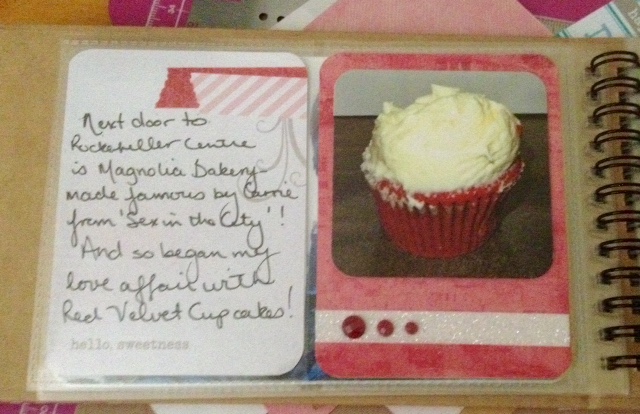 Next door to
Rockefeller Centre
is Magnolia Bakery-
made famous by Carrie
from 'Sex in the City'!
And so began my
love affair with
Red Velvet Cupcakes!
hello, sweetness